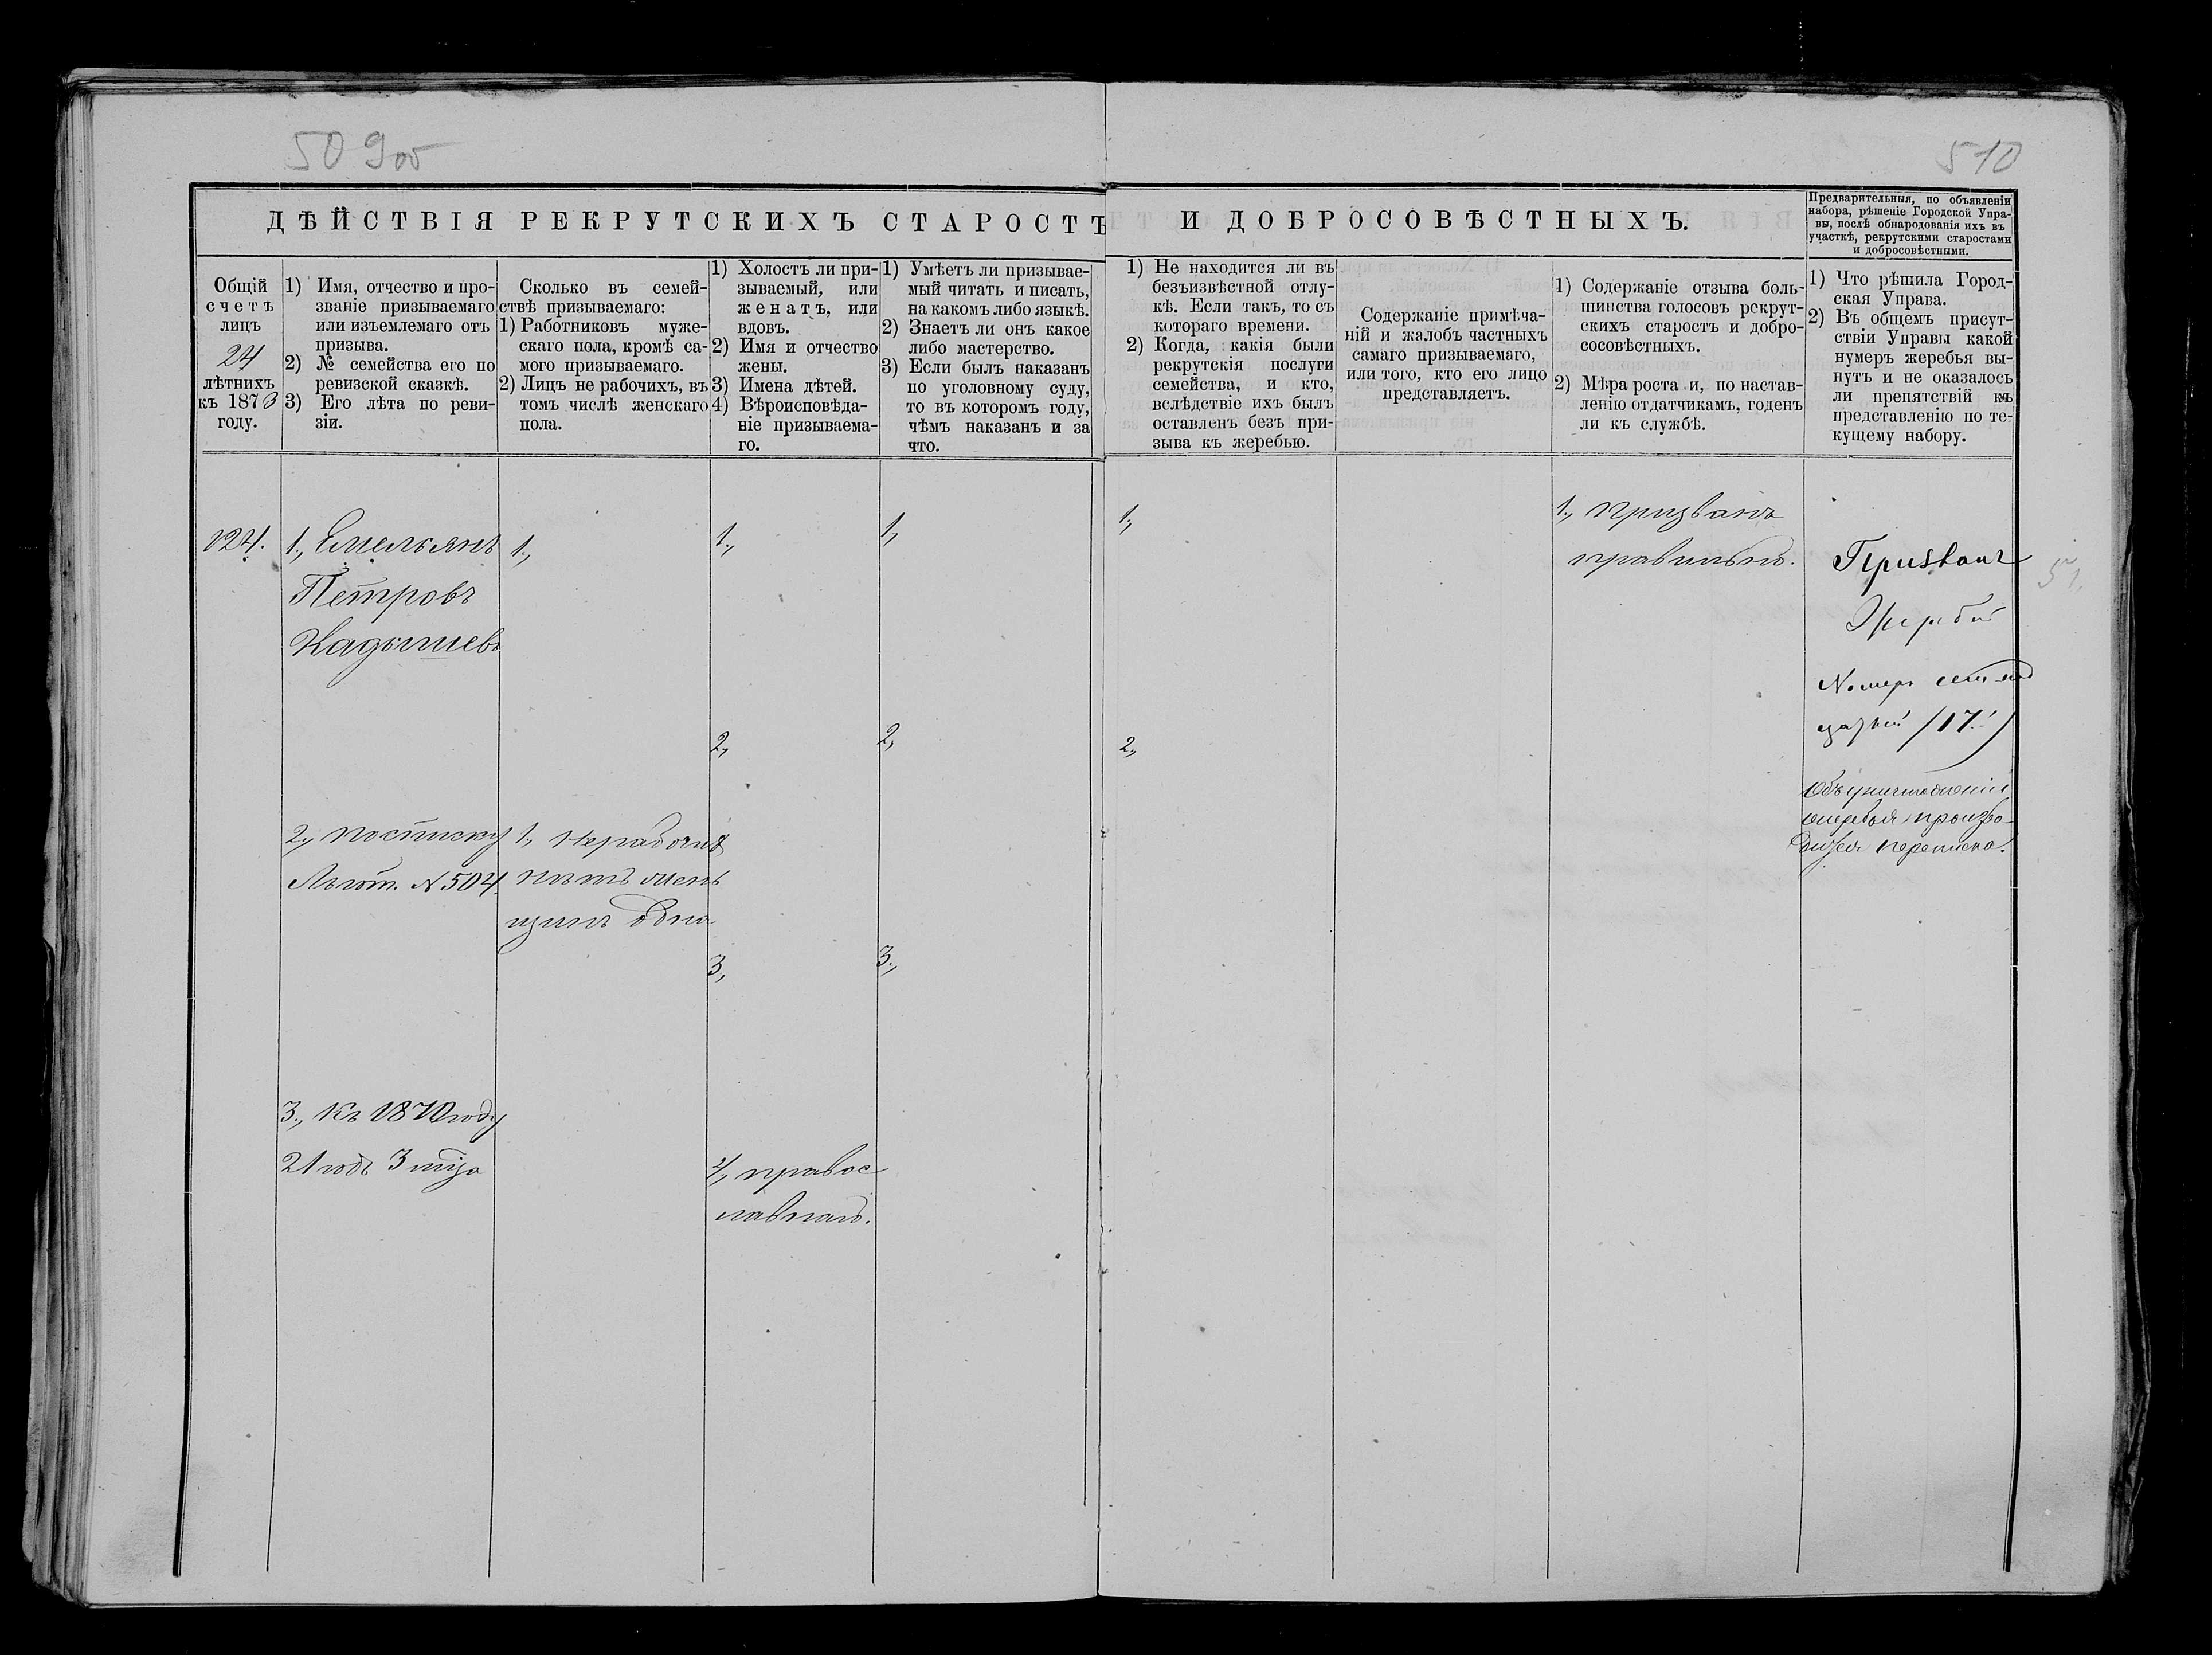 509об
510
ДѢЙСТВІЯ РЕКРУТСКИХЪ СТАРОСТЪ И ДОБРОСОВѢСТНЫХЪ.
Предварительныя, по объявленіи
набора, рѣшеніе Городской Упра-
вы, послѣ обнародованія ихъ въ
участкѣ, рекрутскими старостами
и добросовѣстными.
Общій
счетъ
лицъ
24
лѣтнихъ
къ 1873
году.
1) Имя, отчество и про-
званіе призываемаго
или изъемлемаго отъ
призыва.
2) № семейства его по
ревизской сказкѣ.
3) Его лѣта по реви-
зіи.
Сколько въ семей-
ствѣ призываемаго:
1) Работниковъ муже-
скаго пола, кромѣ са-
мого призываемаго.
2) Лицъ не рабочихъ, въ
томъ числѣ женскаго
пола.
1) Холостъ ли при-
зываемый, или
женатъ, или
вдовъ.
2) Имя и отчество
жены.
3) Имена дѣтей.
4) Вѣроисповѣда-
ніе призываема-
го.
1) Умѣетъ ли призывае-
мый читать и писать,
на какомъ либо языкѣ.
2) Знаетъ ли онъ какое
либо мастерство.
3) Если былъ наказанъ
по уголовному суду,
то въ которомъ году,
чѣмъ наказанъ и за
что.
1) Не находится ли въ
безъизвѣстной отлу-
кѣ. Если такъ, то съ
котораго времени.
2) Когда, какія были
рекрутскія послуги
семейства, и кто,
вслѣдствіе ихъ былъ
оставленъ безъ при-
зыва къ жеребью.
Содержаніе примѣча-
ній и жалобъ частныхъ
самаго призываемаго,
или того, кто его лицо
представляетъ.
1) Содержаніе отзыва боль-
шинства голосовъ рекрут-
скихъ старостъ и добро-
сосовѣстныхъ.
2) Мѣра роста и, по настав-
ленію отдатчикамъ, годенъ
ли къ службѣ.
1) Что рѣшила Город-
ская Управа.
2) Въ общемъ присут-
ствіи Управы какой
нумеръ жеребья вы-
нутъ и не оказалось
ли препятствій къ
представленію по те-
кущему набору.
124.
1., Емельянъ
Петровъ
Кадышевъ
2., по списку
Льгот. N 504.
3., Къ 1870 году
21 годъ 3 мца
1.,
1., Нерабочихъ
нѣтъ жен
щинъ одна
1.,
2.,
3.,
4., правос
лавнаго.
1.,
2.,
3.,
1.,
2.,
1., Призванъ
правильно.
Призванъ
Жребій
Номеръ семьнад
цатый /17./
Объ уничтоженіи
жеребья произво-
дится переписка.